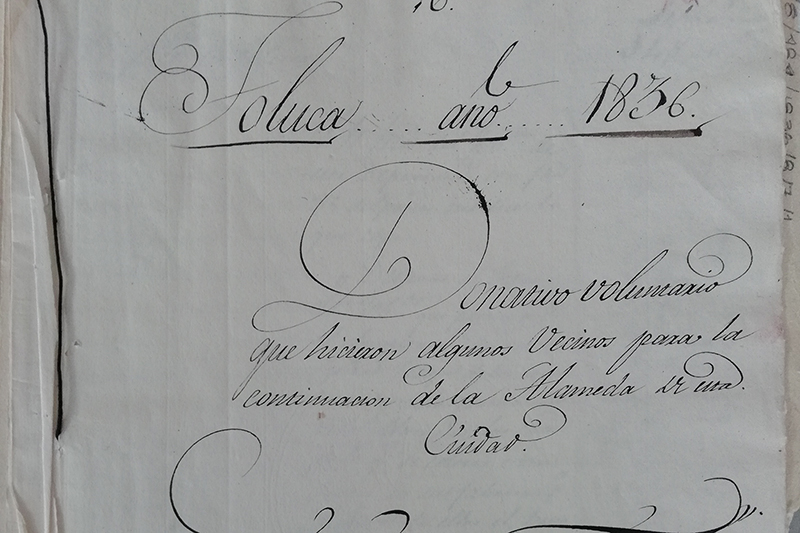 Toluca..... año...... 1836.
Donativo voluntario
que hicieron algunos Vecinos para la
continuacion de la Alameda de esta.
Ciudad.